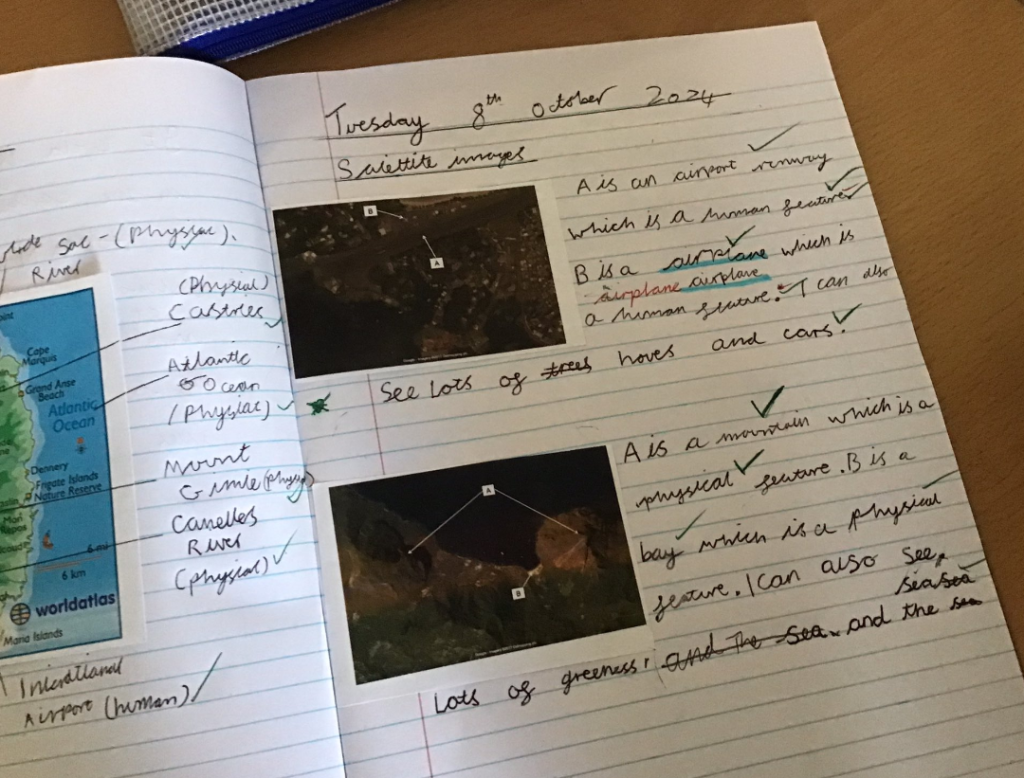 Sac - (Physiac).
River
(Physial)
Castries
Cape
Marquis
Grand Anse
Beach
Atlantic
Ocean
Atlantic
Ocean
(Physiac)
Dennery
Frigate Islands
Nature Reserve
Mount
Gimie (physi
Canelles
River
(physical)
6 mi
6 km
worldatlas
Maria Islands
Airport (human)
Tuesday 8th October 2024
Satettite images
B
A
A is an airport runway
which is a human feature
B is a airplane which is
airplane airplane
a human feature. I can also
See Lots of trees hoves and cars.
A
B
A is a mountain which is a
physical feature. B is a
bay which is a physical
feature. I can also see
sea sea
Lots of greeness, and the sea. and the sea